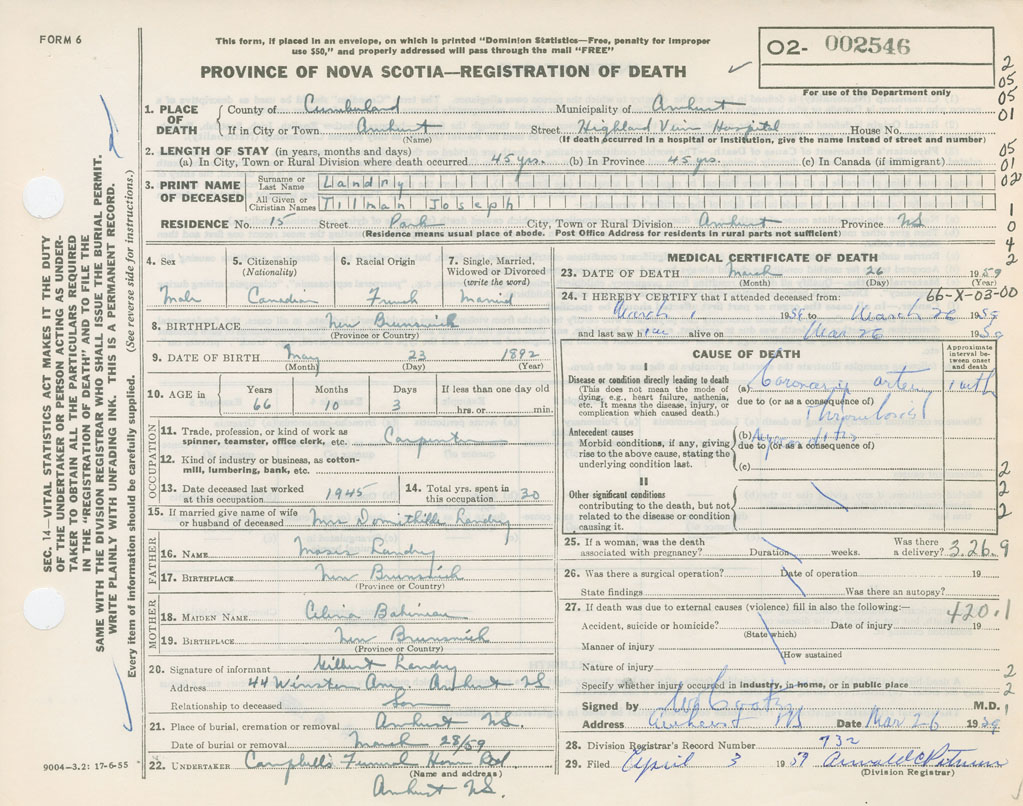 FORM 6
This form, if placed in an envelope, on which is printed "Dominion Statistics—Free, penalty for improper
use $50," and properly addressed will pass through the mail "FREE"
O2- 002546
For use of the Department only
PROVINCE OF NOVA SCOTIA—REGISTRATION OF DEATH
2
05
05
01
05
01
02
1
0
4
2
SEC. 14—VITAL STATISTICS ACT MAKES IT THE DUTY
OF THE UNDERTAKER OR PERSON ACTING AS UNDER-
TAKER TO OBTAIN ALL THE PARTICULARS REQUIRED
IN THE "REGISTRATION OF DEATH" AND TO FILE THE
SAME WITH THE DIVISION REGISTRAR WHO SHALL ISSUE THE BURIAL PERMIT.
WRITE PLAINLY WITH UNFADING INK. THIS IS A PERMANENT RECORD.
Every item of information should be carefully supplied. (See reverse side for instructions.)
1. PLACE OF DEATH
County of Cumberland Municipality of Amherst
If in City or Town Amherst Street Highland View Hospital House No.
(Name) (If death occurred in a hospital or institution, give the name instead of street and number)
2. LENGTH OF STAY (in years, months and days)
(a) In City, Town or Rural Division where death occurred 45 yrs. (b) In Province 45 yrs. (c) In Canada (if immigrant)
3. PRINT NAME OF DECEASED
Surname or Last Name Landry
All Given or Christian Names Tilman Joseph
RESIDENCE No. 15 Street Park City, Town or Rural Division Amherst Province NS
(Residence means usual place of abode. Post Office Address for residents in rural parts not sufficient)
4. Sex Male
5. Citizenship (Nationality) Canadian
6. Racial Origin French
7. Single, Married, Widowed or Divorced (write the word) Married
8. BIRTHPLACE New Brunswick
(Province or Country)
9. DATE OF BIRTH May 23 1892
(Month) (Day) (Year)
10. AGE in Years 66 Months 10 Days 3 If less than one day old hrs. or min.
OCCUPATION
11. Trade, profession, or kind of work as
spinner, teamster, office clerk, etc. Carpenter
12. Kind of industry or business, as cotton-
mill, lumbering, bank, etc.
13. Date deceased last worked
at this occupation 1945
14. Total yrs. spent in
this occupation 30
15. If married give name of wife
or husband of deceased Mrs Domithilde Landry
FATHER
16. NAME Moses Landry
17. BIRTHPLACE New Brunswick
(Province or Country)
MOTHER
18. MAIDEN NAME
19. BIRTHPLACE New Brunswick
(Province or Country)
20. Signature of informant Wilbert Landry
Address 44 Winston Ave. Amherst NS
Relationship to deceased Son
21. Place of burial, cremation or removal Amherst N.S.
Date of burial or removal March 28/59
22. UNDERTAKER Campbell's Funeral Home Reg.
(Name and address)
Amherst N.S.
9004-3.2: 17-6-55
MEDICAL CERTIFICATE OF DEATH
23. DATE OF DEATH March 26 1959
(Month) (Day) (Year)
66-X-03-00
24. I HEREBY CERTIFY that I attended deceased from:
March 1 1959 to March 26 1959
and last saw him alive on Mar 26 1959
CAUSE OF DEATH
Approximate interval between onset and death
I
Disease or condition directly leading to death
(This does not mean the mode of
dying, e.g., heart failure, asthenia,
etc. It means the disease, injury, or
complication which caused death.)
(a) Coronary artery
due to (or as a consequence of)
Thrombosis
Antecedent causes
Morbid conditions, if any, giving
rise to the above cause, stating the
underlying condition last.
(b)
due to (or as a consequence of)
(c)
2
II
Other significant conditions
contributing to the death, but not
related to the disease or condition
causing it.
2
2
25. If a woman, was the death
associated with pregnancy? Duration weeks. Was there
a delivery? 3.26.9
26. Was there a surgical operation? Date of operation 19
State findings Was there an autopsy?
27. If death was due to external causes (violence) fill in also the following:—
420.1
Accident, suicide or homicide? Date of injury 19
(State which)
Manner of injury
(How sustained
Nature of injury
Specify whether injury occurred in industry, in home, or in public place
2
2
1
Signed by M.D.
Address Amherst NS Date Mar 26 1959
28. Division Registrar's Record Number 732
29. Filed April 3 1959
(Division Registrar)